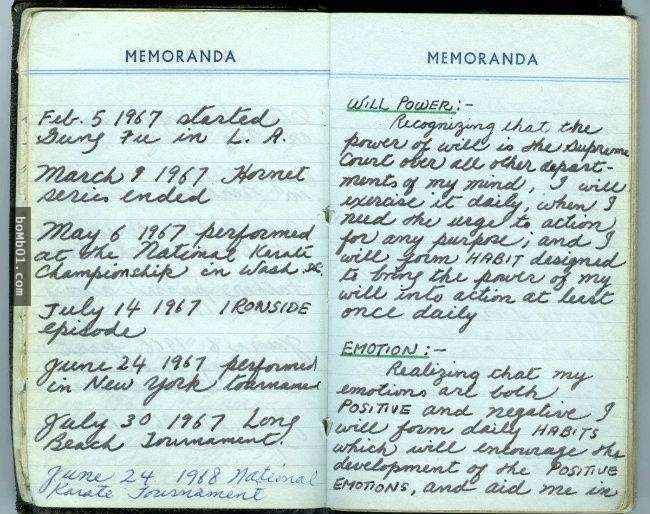 MEMORANDA
Feb. 5 1967 started
Gung Fu in L. A.
March 9 1967 Hornet
series ended
May 6 1967 performed
at the National Karate
Championship in Wash DC.
July 14 1967 IRONSIDE
episode
June 24 1967 performed
in New York tournament
July 30 1967 Long
Beach Tournament.
June 24 1968 National
Karate Tournament
MEMORANDA
WILL POWER:-
Recognizing that the
power of will is the Supreme
Court over all other depart-
ments of my mind, I will
exercise it daily, when I
need the urge to action
for any purpose; and I
will form HABIT designed
to bring the power of my
will into action at least
once daily
EMOTION:-
Realizing that my
emotions are both
POSITIVE and negative I
will form daily HABITS
which will encourage the
development of the POSITIVE
EMOTIONS, and aid me in
bomb01.com